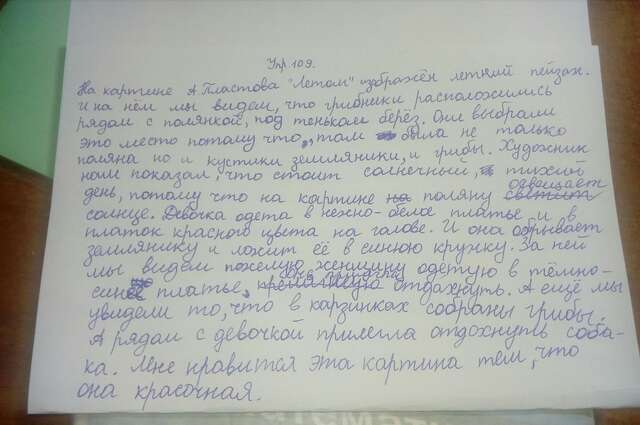 Упр. 109.
На картине А. Пластова "Летом" изображён летний пейзаж.
И на нём мы видем, что грибники расположились
рядом с полянкой, под теньком берёз. Они выбрали
это место потому что, там была не только
поляна но и кустики земляники, и грибы. Художник
нам показал, что стоит солнечный, тихий
день, потому что на картине поляну освещает
солнце. Девочка одета в нежно-белое платье и в
платок красного цвета на галове. И она обрывает
землянику и ложит её в синюю кружку. За ней
мы видем пожелую женщину одетую в тёмно-
синее платье, она прилегла отдохнуть. А ещё мы
увидели то, что в карзинках собраны грибы.
А рядом с девочкой прилегла отдохнуть соба-
ка. Мне нравится эта картина тем, что
она красочная.